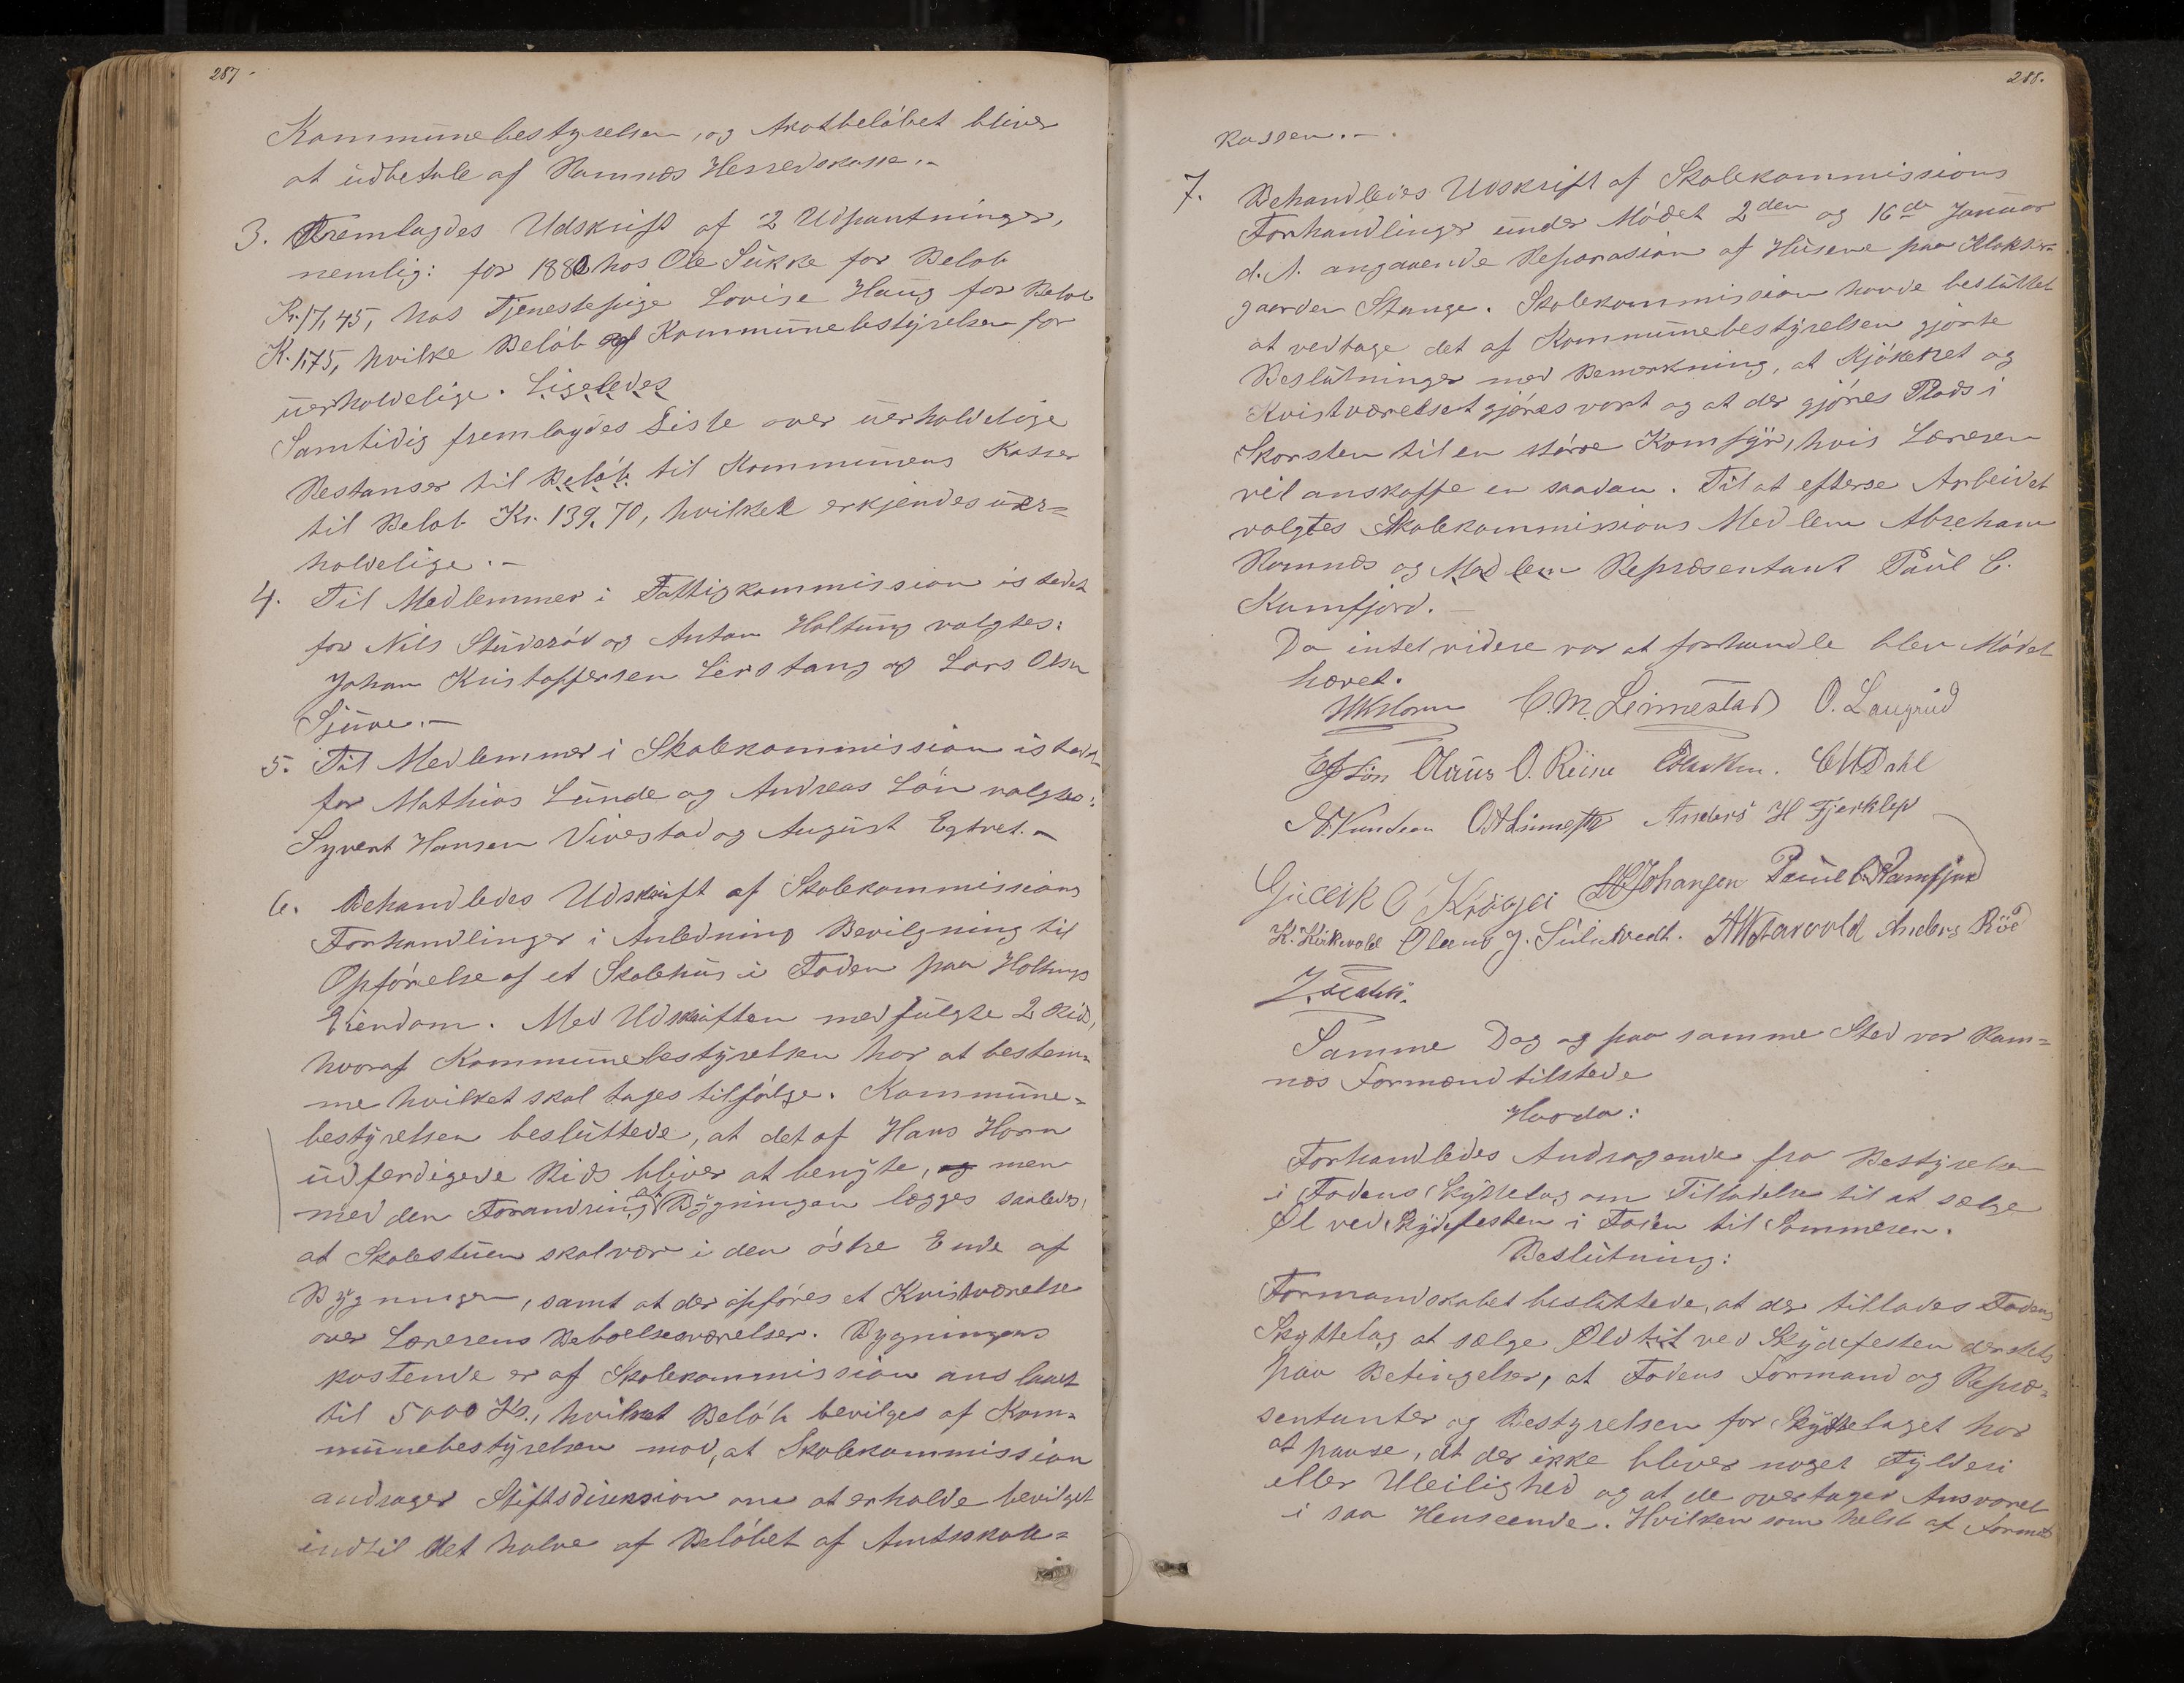 287-
Kommunebestyrelsen, og Akotbeløbet bliver
at udbetale af Ramnæs Herredskasse.-
3. Fremlagdes Udskrift af 2 Udpantninger,
nemlig: for 1880 hos Ole Sükke for Beløb
Kr. 17,45, hos Tjenestepige Lovise Haug for Beløb
K. 1,75, hvilke Beløb af Kommunebestyrelsen for
uerholdelige. Ligeledes
Samtidig fremlagdes Liste over uerholdelige
Restanser til Beløb til Kommunens Kasser
til Beløb Kr. 139.70, hvilket erkjendes uer=
holdelige.-
4. Til Medlemmer i Fattigkommission istedet
for Nils Stüderød og Anton Holtung valgtes:
Johan Kristoffersen Lerstang og Lars Olsen
Sjüve.-
5. Til Medlemmer i Skolekommission istedet
for Mathias Lunde og Andreas Lön valgtes:
Syvert Hansen Vivestad og August Egtvet.-
6. Behandledes Udskrift af Skolekommissions
Forhandlinger i Anledning Bevilgning til
Opførelse af et Skolehus i Foden paa Holtungs
Eiendom. Med Udskriften medfulgte 2 Rids,
hvoraf Kommunebestyrelsen har at bestem=
me hvilket skal tages tilfølge. Kommune=
bestyrelsen besluttede, at det af Hans Horn
udferdigede Rids bliver at benyte, og men
med den Forandring at Bygningen lægges saaledes,
at Skolestuen skal vær i den østre Ende af
Bygningen, samt at der opføres et Kvistværelse
over Lærerens Beboelsesværelser. Bygningens
kostende er af Skolekommission anslaaet
til 5000 Kr., hvilket Beløb bevilges af Kom=
munebestyrelsen mod, at Skolekommission
andrager Stiftsdireksion om at erholde bevilget
indtil det halve af Beløbet af Amtsskole=
288.
kassen.-
7. Behandledes Udskrift af Skolekommissions
Forhandlinger under Mødet 2den og 16de Januar
d. A. angaaende Reparasion af Husene paa Klokker=
gaarden Stange. Skolekommission havde besluttet
at vedtage det af Kommunebestyrelsen gjorte
Beslutninger med Bemerkning, at Kjøkenet og
Kvistværelset gjøres vart og at der gjøres Plads i
Skorsten til en større Komfyr, hvis Læreren
vil anskaffe en saadan. Til at efterse Arbeidet
valgtes Skolekommissions Medlem Abreham
Ramnæs og Medlem Representant Paul C.
Kamfjord.-
Da intet videre var at forhandle blev Mødet
hævet.
HHHorn C. M. Linnestad O. Laugrud
Olaus O. Reine CHDahl
Anders H Fjerklep
Gullik O Krøgei Johansen Paul C. Kamfjord
K. Kirkevold J. Sulutvedt. Starvold Anders Röd
Samme Dag og paa samme Sted var Ram=
næs Formænd tilstede
Hvorda:
Forhandledes Andragende fra Bestyrelsen
i Fodens Skyttelag om Tilladelse til at sælge
Øl ved Skydefesten i Foden til Sommeren.
Beslutning:
Formandskabet besluttede, at der tillades Fodens
Skyttelag at sælge Øl til ved Skydefesten dersteds
paa Betingelser, at Fodens Formand og Repræ=
sentanter og Bestyrelsen for Skyttelaget har
at paase, at der ikke bliver noget Fylderi
eller Uleilighed og at de overtager Ansvaret
i saa Henseende. Hvilken som helst af Formæd